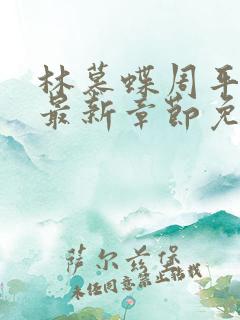 林慕蝶周平
最新章节免
萨尔兹堡
未经同意禁止转载